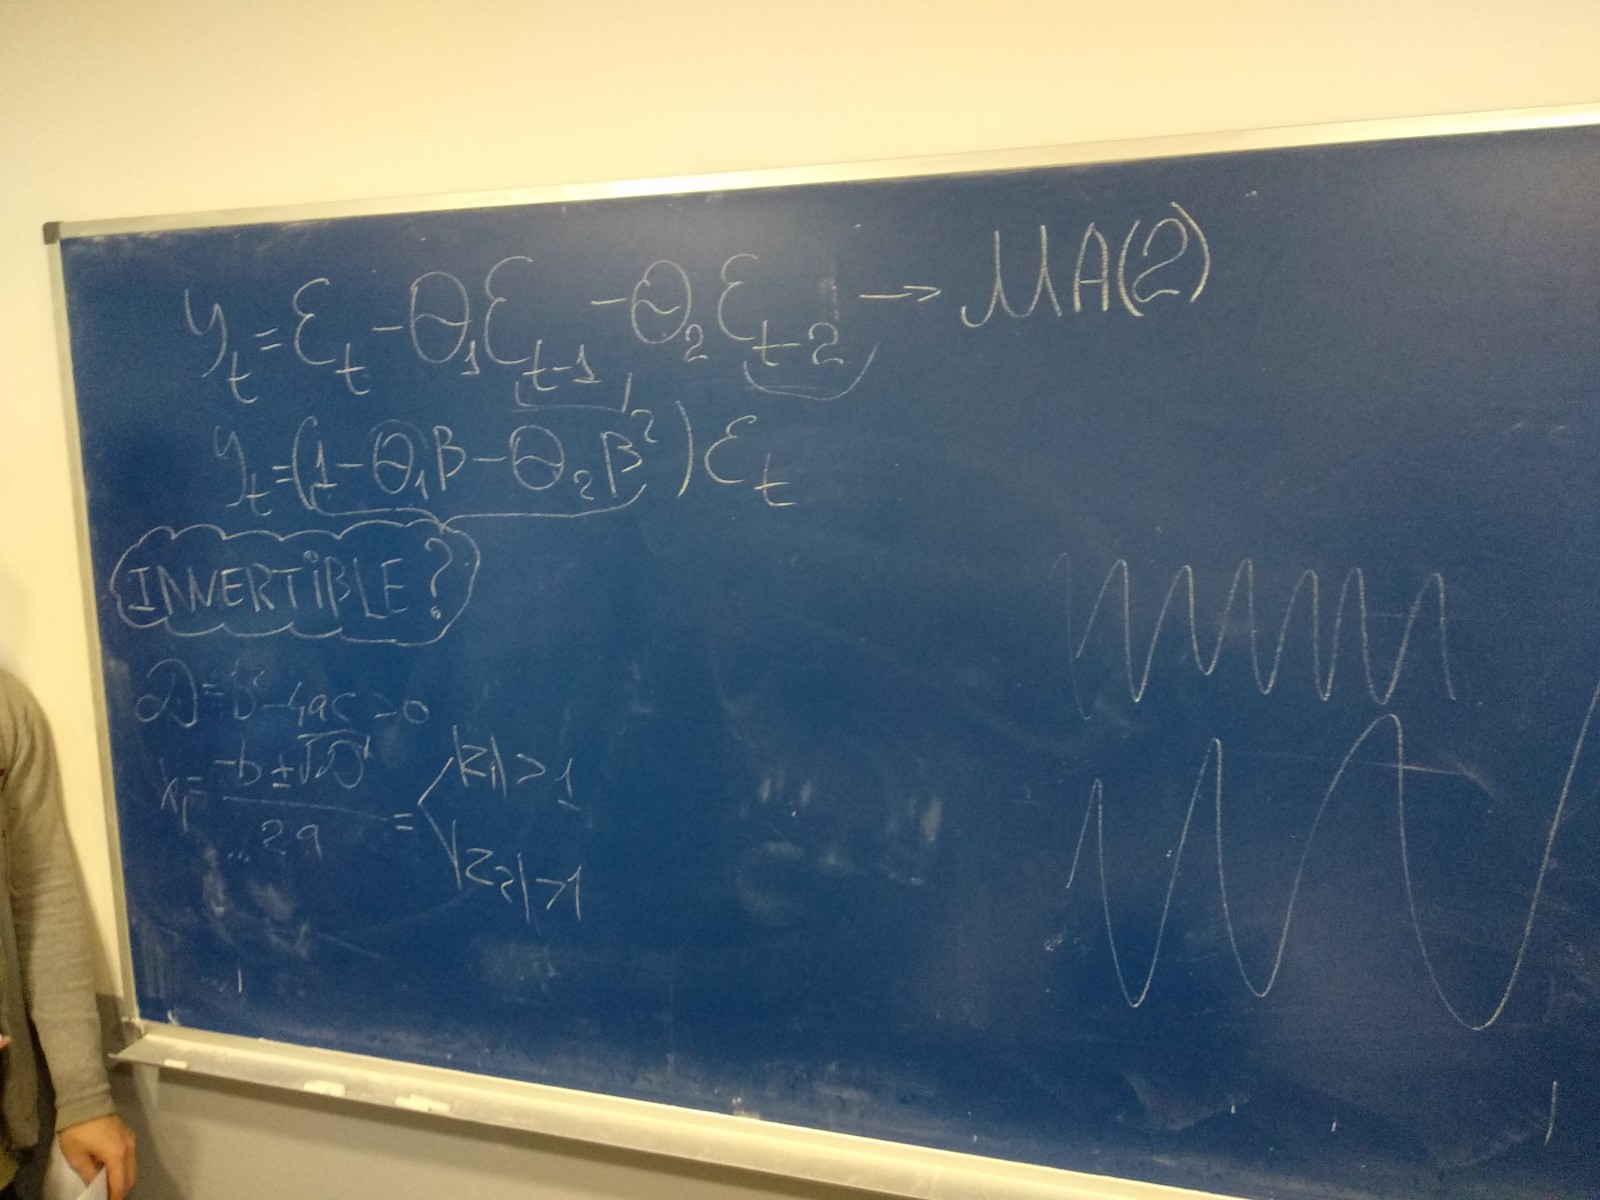 y_t = ε_t - θ_1 ε_{t-1} - θ_2 ε_{t-2} → MA(2)
y_t = (1 - θ_1 β - θ_2 β^2) ε_t
INVERTIBLE?
D = b^2 - 4ac > 0
= |z_1| > 1
-b ± √D
2a
|z_2| > 1